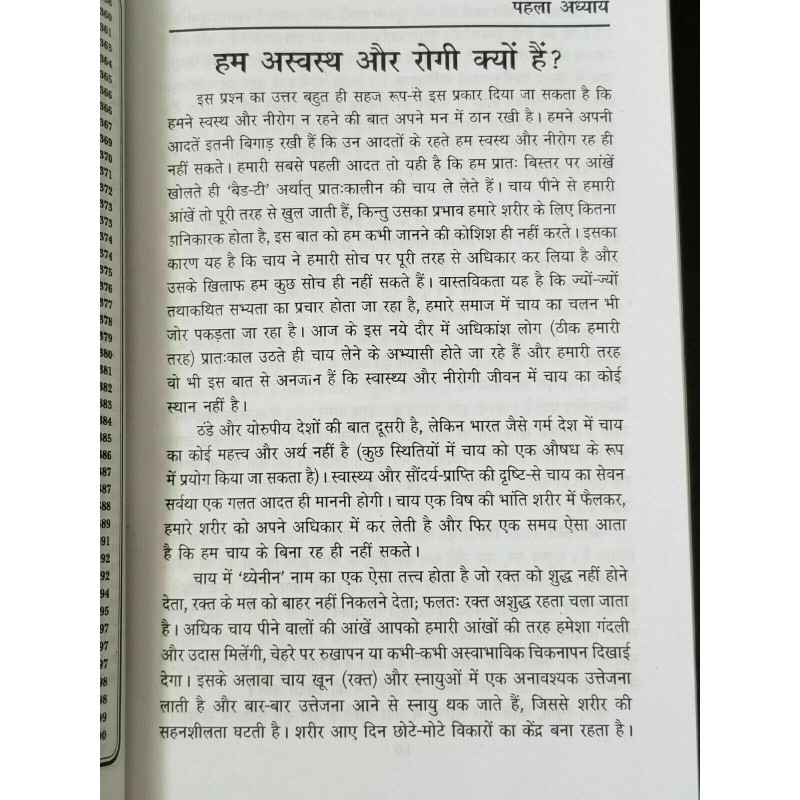 पहला अध्याय
हम अस्वस्थ और रोगी क्यों हैं?
इस प्रश्न का उत्तर बहुत ही सहज रूप-से इस प्रकार दिया जा सकता है कि
हमने स्वस्थ और नीरोग न रहने की बात अपने मन में ठान रखी है। हमने अपनी
आदतें इतनी बिगाड़ रखी हैं कि उन आदतों के रहते हम स्वस्थ और नीरोग रह ही
नहीं सकते। हमारी सबसे पहली आदत तो यही है कि हम प्रातः बिस्तर पर आंखें
खोलते ही ‘बैड-टी’ अर्थात् प्रातःकालीन की चाय ले लेते हैं। चाय पीने से हमारी
आंखें तो पूरी तरह से खुल जाती हैं, किन्तु उसका प्रभाव हमारे शरीर के लिए कितना
हानिकारक होता है, इस बात को हम कभी जानने की कोशिश ही नहीं करते। इसका
कारण यह है कि चाय ने हमारी सोच पर पूरी तरह से अधिकार कर लिया है और
उसके खिलाफ हम कुछ सोच ही नहीं सकते हैं। वास्तविकता यह है कि ज्यों-ज्यों
तथाकथित सभ्यता का प्रचार होता जा रहा है, हमारे समाज में चाय का चलन भी
जोर पकड़ता जा रहा है। आज के इस नये दौर में अधिकांश लोग (ठीक हमारी
तरह) प्रातःकाल उठते ही चाय लेने के अभ्यासी होते जा रहे हैं और हमारी तरह
वो भी इस बात से अनजान हैं कि स्वास्थ्य और नीरोगी जीवन में चाय का कोई
स्थान नहीं है।
ठंडे और योरुपीय देशों की बात दूसरी है, लेकिन भारत जैसे गर्म देश में चाय
का कोई महत्त्व और अर्थ नहीं है (कुछ स्थितियों में चाय को एक औषध के रूप
में प्रयोग किया जा सकता है)। स्वास्थ्य और सौंदर्य-प्राप्ति की दृष्टि-से चाय का सेवन
सर्वथा एक गलत आदत ही माननी होगी। चाय एक विष की भांति शरीर में फैलकर,
हमारे शरीर को अपने अधिकार में कर लेती है और फिर एक समय ऐसा आता
है कि हम चाय के बिना रह ही नहीं सकते।
चाय में ‘थ्येनीन’ नाम का एक ऐसा तत्त्व होता है जो रक्त को शुद्ध नहीं होने
देता, रक्त के मल को बाहर नहीं निकलने देता; फलतः रक्त अशुद्ध रहता चला जाता
है। अधिक चाय पीने वालों की आंखें आपको हमारी आंखों की तरह हमेशा गंदली
और उदास मिलेंगी, चेहरे पर रुखापन या कभी-कभी अस्वाभाविक चिकनापन दिखाई
देगा। इसके अलावा चाय खून (रक्त) और स्नायुओं में एक अनावश्यक उत्तेजना
लाती है और बार-बार उत्तेजना आने से स्नायु थक जाते हैं, जिससे शरीर की
सहनशीलता घटती है। शरीर आए दिन छोटे-मोटे विकारों का केंद्र बना रहता है।